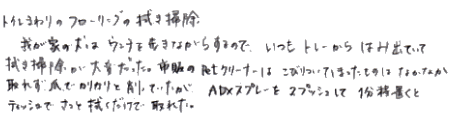 トイレまわりのフローリングの拭き掃除
我が家の犬はウンチを歩きながらするので、いつもトレーからはみ出ていて
拭き掃除が大変だった。市販のpetクリーナーはこびりついてしまったものはなかなか
取れず爪でカリカリと削っていたが、ADXスプレーをスプッシュして1分程置くと
ティッシュでさっと拭くだけで取れた。